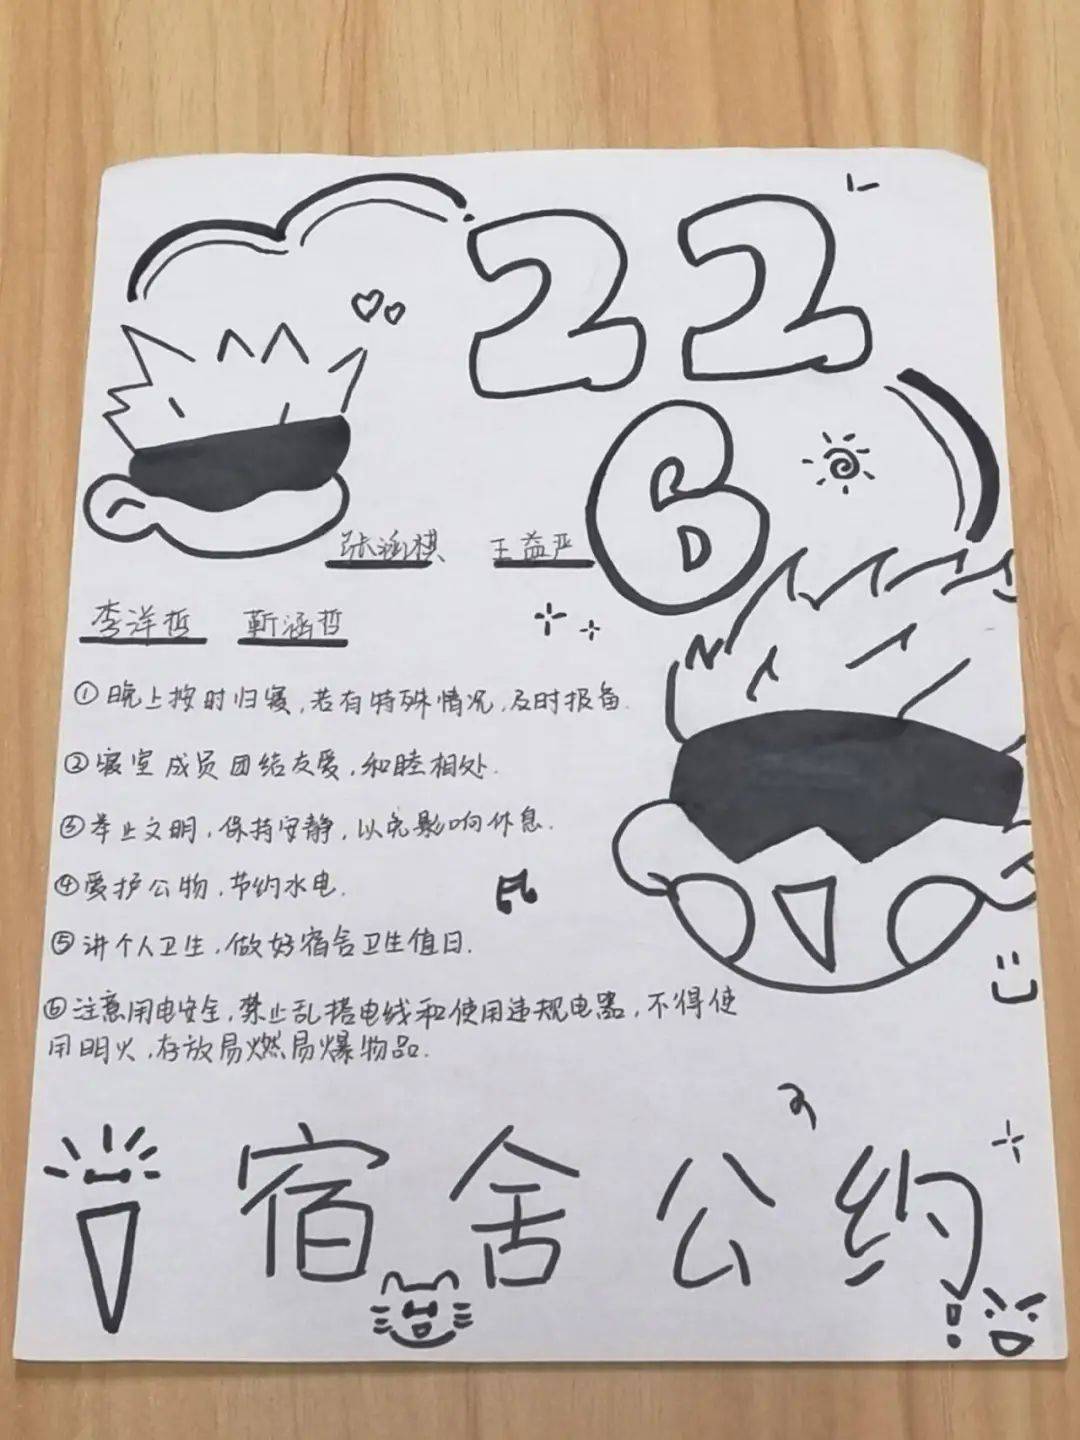 22
6
张涵棋 王益严
李洋哲 靳涵哲
①晚上按时归寝,若有特殊情况,及时报备.
②寝室成员团结友爱,和睦相处.
③举止文明,保持安静,以免影响休息.
④爱护公物,节约水电.
⑤讲个人卫生,做好宿舍卫生值日.
⑥注意用电安全,禁止乱搭电线和使用违规电器,不得使
用明火,存放易燃易爆物品.
宿舍公约